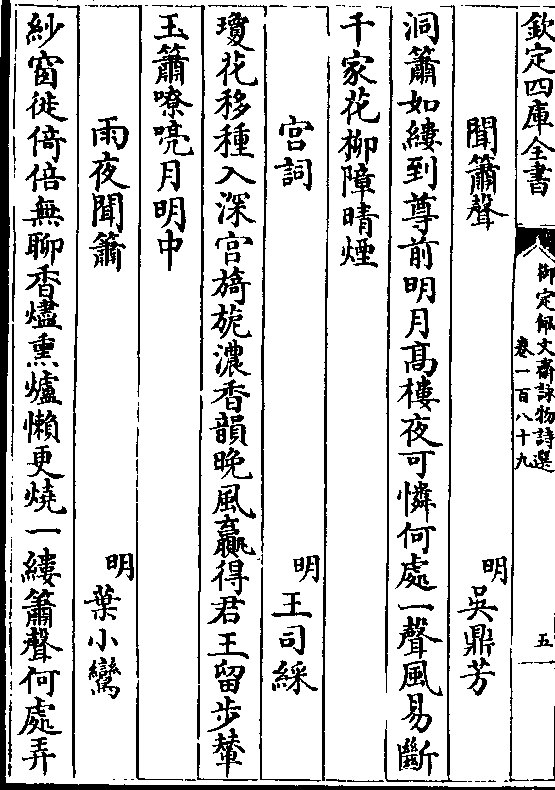 欽定四庫全書
御定佩文齋詠物詩選
卷一百八十九
五
聞簫聲
明 吳鼎芳
洞簫如縷到尊前明月高樓夜可憐何處一聲風易斷
千家花柳障晴煙
宮詞
明 王司綵
瓊花移種入深宮旖旎濃香韻晚風贏得君王留步輦
玉簫嘹喨月明中
雨夜聞簫
明 葉小鸞
紗窗徙倚倍無聊香燼熏爐懶更燒一縷簫聲何處弄